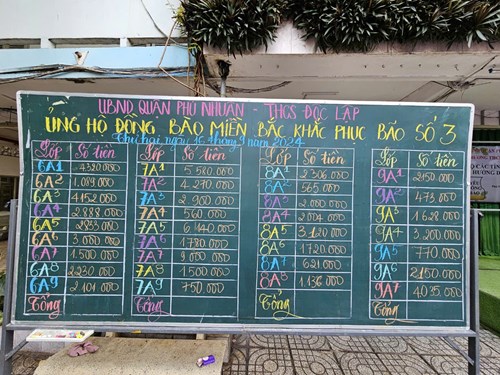 UBND QUẬN PHÚ NHUẬN - THCS ĐỘC LẬP
ỦNG HỘ ĐỒNG BÀO MIỀN BẮC KHẮC PHỤC BÃO SỐ 3
Thứ hai, ngày 16 tháng 9 năm 2024
Lớp Số tiền
6A1 4320.000
6A2 1.089.000
6A3 4152.000
6A4 2.888.000
6A5 2833.000
6A6 3.000.000
6A7 1.500.000
6A8 2230.000
6A9 2.104.000
Tổng
Lớp Số tiền
7A1 5.580.000
7A2 4.270.000
7A3 2.900.000
7A4 560.000
7A5 6.140.000
7A6 1.780.000
7A7 9.000.000
7A8 1.500.000
7A9 750.000
Tổng
Lớp Số tiền
8A1 2.306.000
8A2 565.000
8A3 2.000.000
8A4 2.004.000
8A5 3.120.000
8A6 1.720.000
8A7 621.000
8A8 1.136.000
Tổng
Lớp Số tiền
9A1 2.150.000
9A2 473.000
9A3 1.628.000
9A4 3.200.000
9A5 770.000
9A6 2.150.000
9A7 4.035.000
Tổng